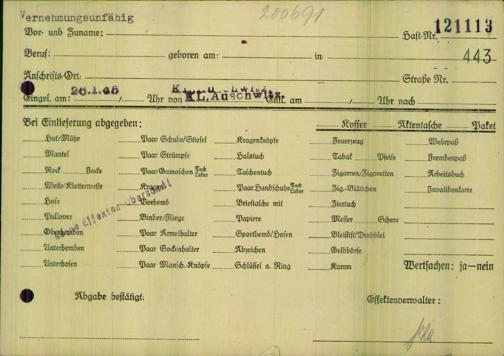 Vernehmungsunfähig 200691
Vor- und Zuname: Haft-Nr. 121113
Beruf: geboren am: in: 443
Anschrifts-Ort: Straße Nr.
Eingel. am: 26.1.45 Uhr von KL. Auschwitz. Entl. am / Uhr nach
Bei Einlieferung abgegeben: Koffer Aktentasche Paket
Hut/Mütze Paar Schuhe/Stiefel Kragenknöpfe Feuerzeug Wehrpaß
Mantel Paar Strümpfe Halstuch Tabak Pfeife Fremdenpaß
Rock Hose Paar Gamaschen Tuch Leder Taschentuch Zigarren/Zigaretten Arbeitsbuch
Weste/Kletterweste Kragen Paar Handschuhe Tuch Leder Zig.-Blättchen Invalidenkarte
Hose Vorhemd Brieftasche mit Ziertuch
Pullover Binder/Fliege Papiere Messer Schere
Oberhemden Paar Ärmelhalter Sporthemd/Hosen Bleistift/Drehblei
Unterhemden Paar Sockenhalter Abzeichen Geldbörse
Unterhosen Paar Mansch.-Knöpfe Schlüssel a. Ring Kamm Wertsachen: ja—nein
Effekten
Abgabe bestätigt: Effektenverwalter: